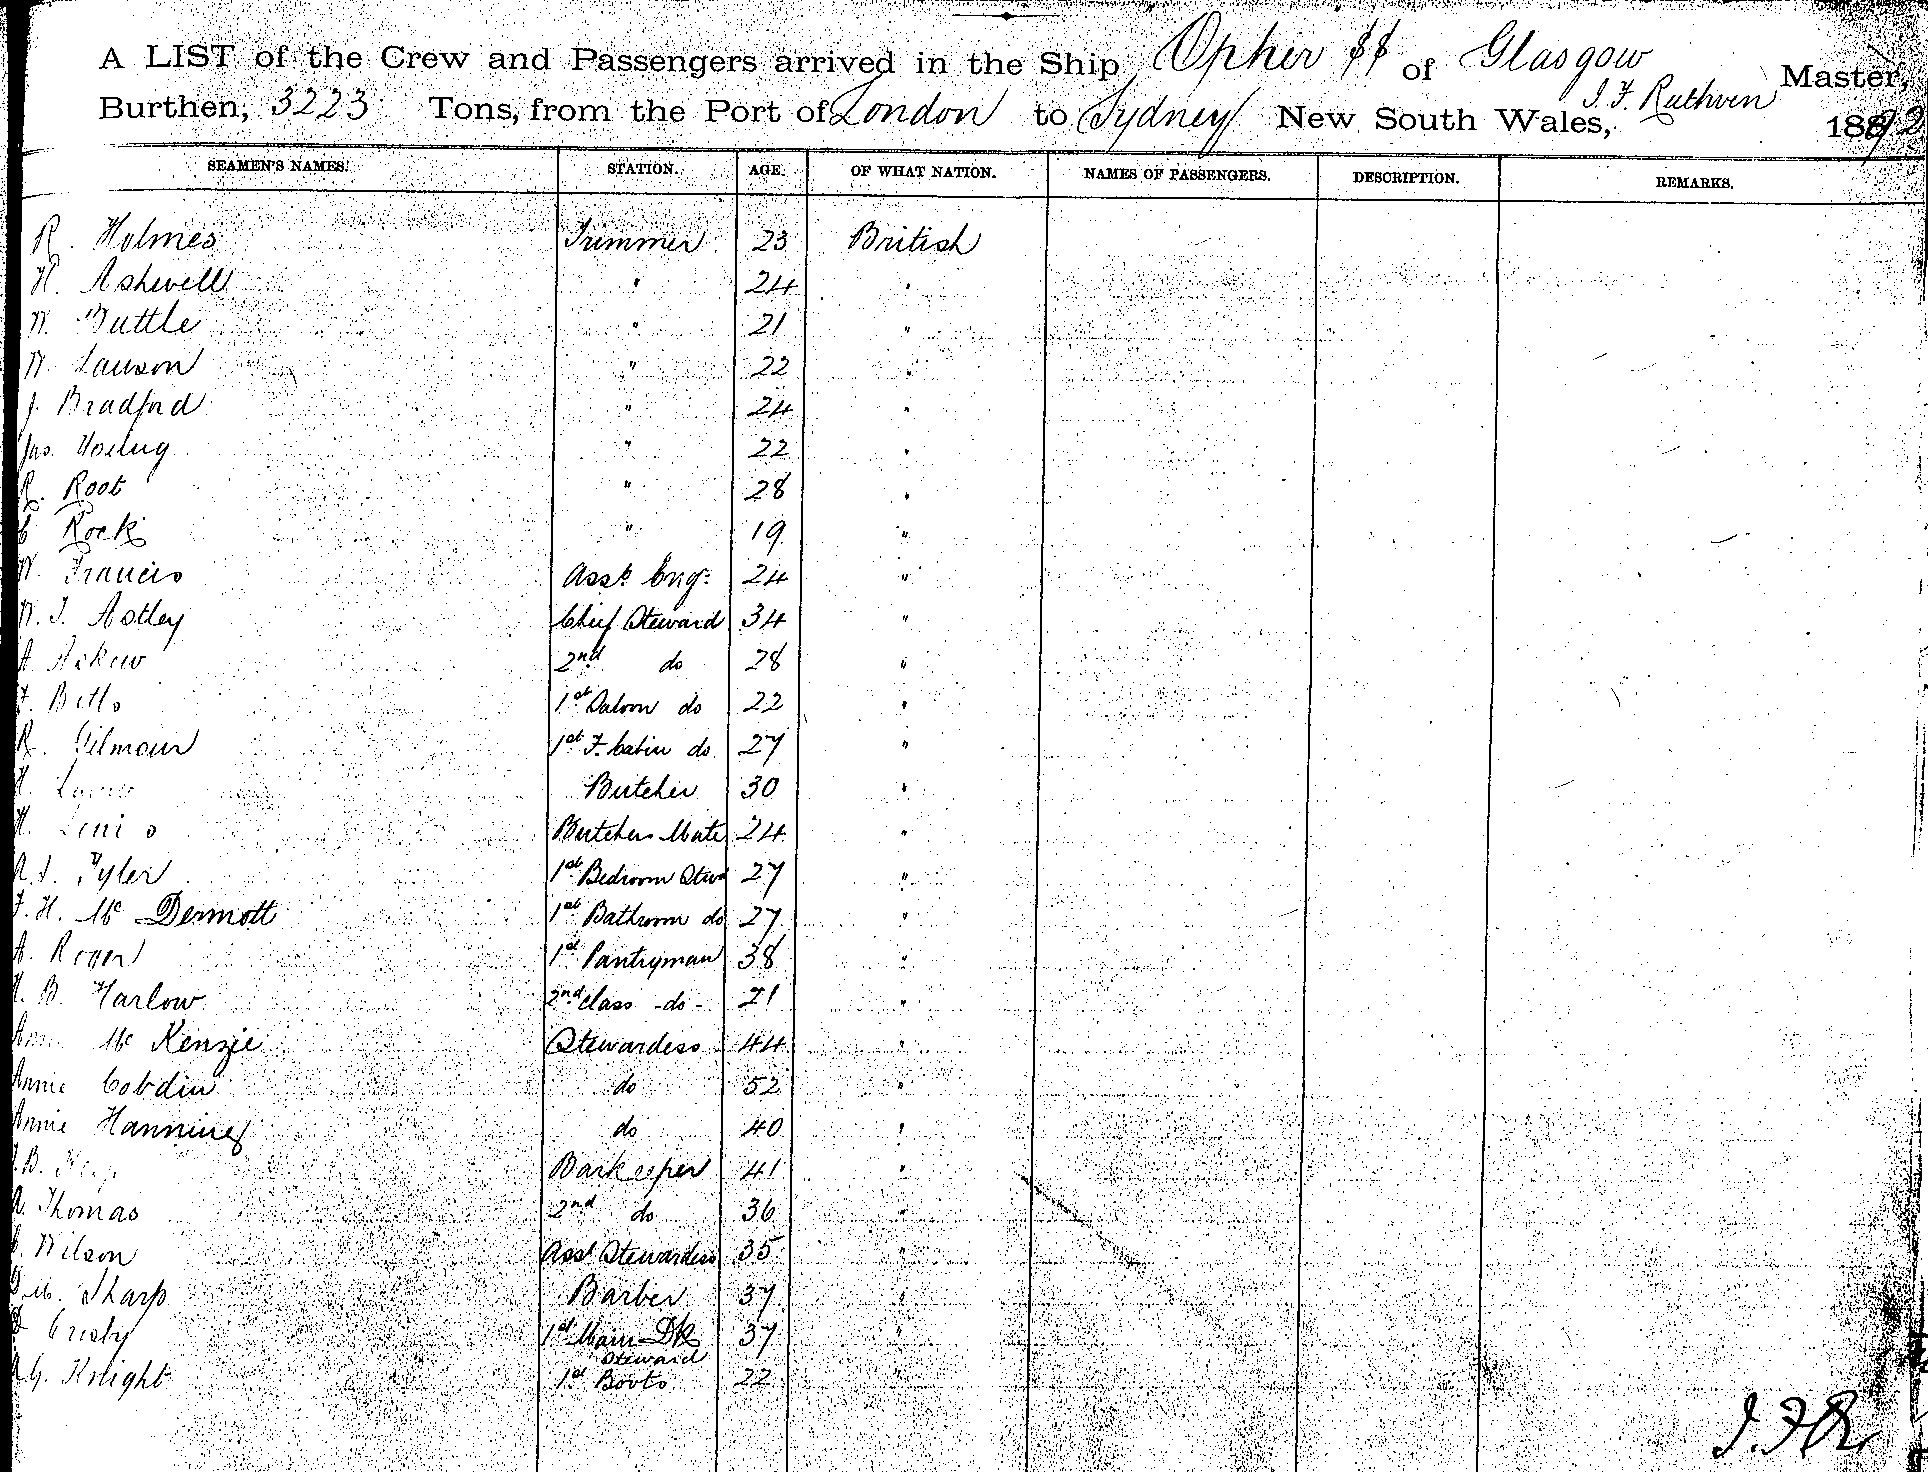 A LIST of the Crew and Passengers arrived in the Ship Opher SS of Glasgow
J. F. Ruthven Master,
Burthen, 3223 Tons, from the Port of London to Sydney New South Wales, 1892
SEAMEN'S NAMES. STATION. AGE. OF WHAT NATION. NAMES OF PASSENGERS. DESCRIPTION. REMARKS.
R. Holmes Trimmer 23 British
H. Ashwell " 24 "
W. Buttle " 21 "
W. Lawson " 22 "
J. Bradford " 24 "
Jas. Young " 22 "
R. Root " 28 "
C Rock " 19 "
W. Francis Asst. Engr. 24 "
W. J. Astley Chief Steward 34 "
A. Askew 2nd do 28 "
F. Betts 1st Saloon do 22 "
R. Gilmour 1st F. Cabin do 27 "
H. Butcher 30 "
H. Butchers Mate 24 "
A. J. Tyler 1st Bedroom Stew 27 "
F. H. Mc Dermott 1st Bathroom do 27 "
A. Roger 1st Pantryman 38 "
H. B. Harlow 2nd class -do- 21 "
Ann Mc Kenzie Stewardess 44 "
Annie Cobdin do 52 "
Annie Hanning do 40 "
B. Barkeeper 41 "
A. Thomas 2nd do 36 "
Wilson Asst Stewardess 35 "
Sharp Barber 37 "
Crosby 1st Main DK 37 "
Steward
A G. Knight 1st Boots 22 "
J.F.R.